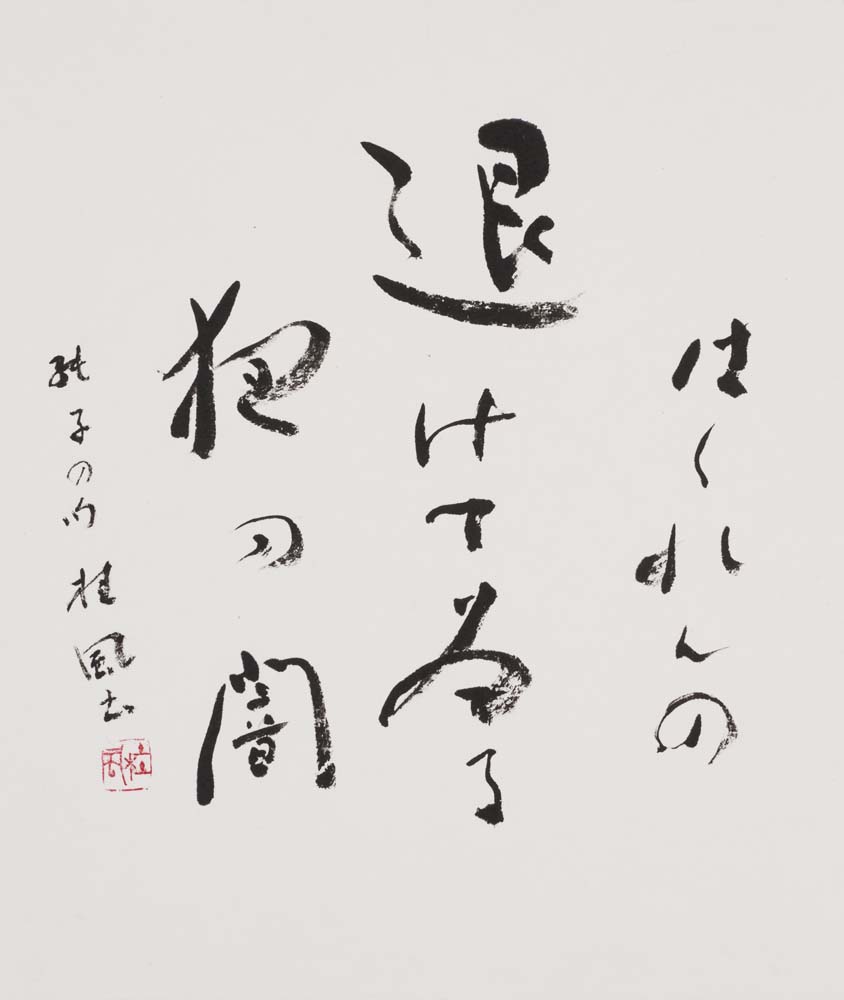 はくれんの
退けて為る
夜の闇
純子の句 桂風書
桂風